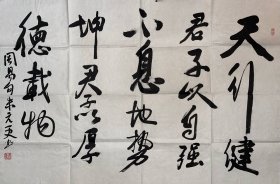 天行健
君子以自强
不息地势
坤君子以厚
德载物
周易句米元文书